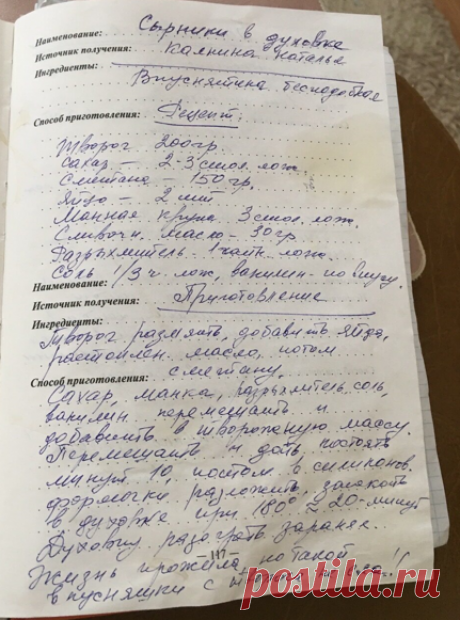 Наименование: Сырники в духовке
Источник получения: Калнина Наталья
Ингредиенты:
Вкуснятина бесподобная
Способ приготовления: Рецепт:
Творог 200 гр.
Сахар – 2-3 стол. лож.
Сметана – 150 гр.
Яйцо – 2 шт
Манная крупа 3 стол. лож.
Сливочн. масло – 30 гр
Разрыхлитель 1 чайн. лож.
Соль 1/3 ч. лож, ванилин – по вкусу.
Наименование:
Источник получения: Приготовление
Ингредиенты:
Творог размять, добавить яйца,
растоплен. масло, потом
Способ приготовления: сметану,
Сахар, манка, разрыхлитель, соль,
ванилин перемешать и
добавить в творожную массу.
Перемешать и дать постоять
минут 10, постом в силиконов.
формочки разложить, запекать
в духовке при 180° ≈ 20 минут
Духовку разогреть заранее.
– 117 –
Жизнь прожила, но такой
вкусняшки с
posta-risu.ru